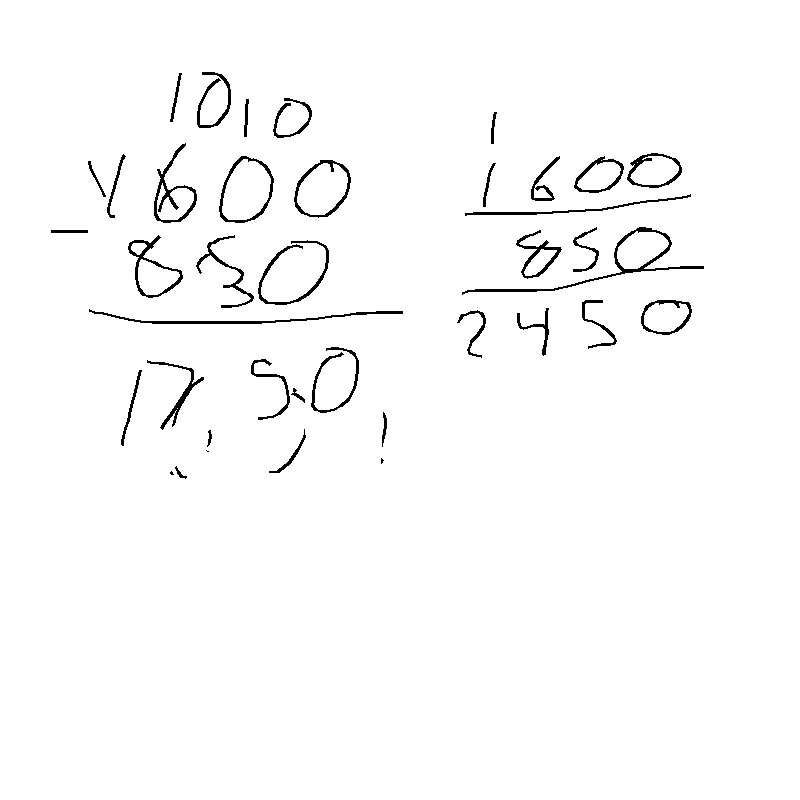 1010
1600
- 850
1750
1
1600
850
2450